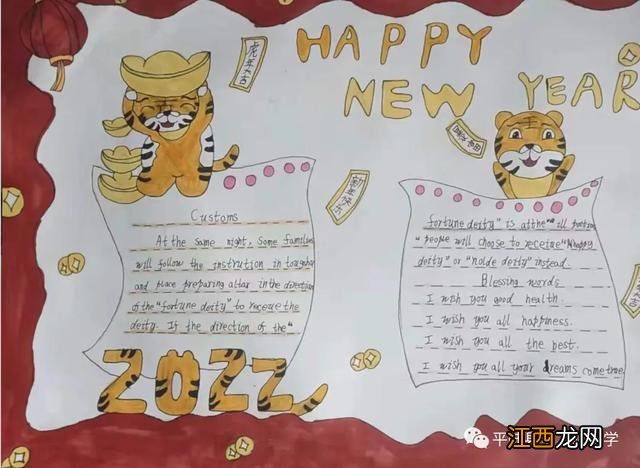 HAPPY
NEW YEAR
虎年大吉
新年快乐
Customs
At the same night, some families
will follow the instrution in
and place preparing altar in the direction
of the "fortune deity" to receive the
deity. If the direction of the "
fortune deity" is at the "ill
"people will choose to receive "happy
deity" or "nolde deity" instead.
Blessing words
I wish you good health.
I wish you all happiness.
I wish you all the best.
I wish you all your dreams come true
2022
江西龙网